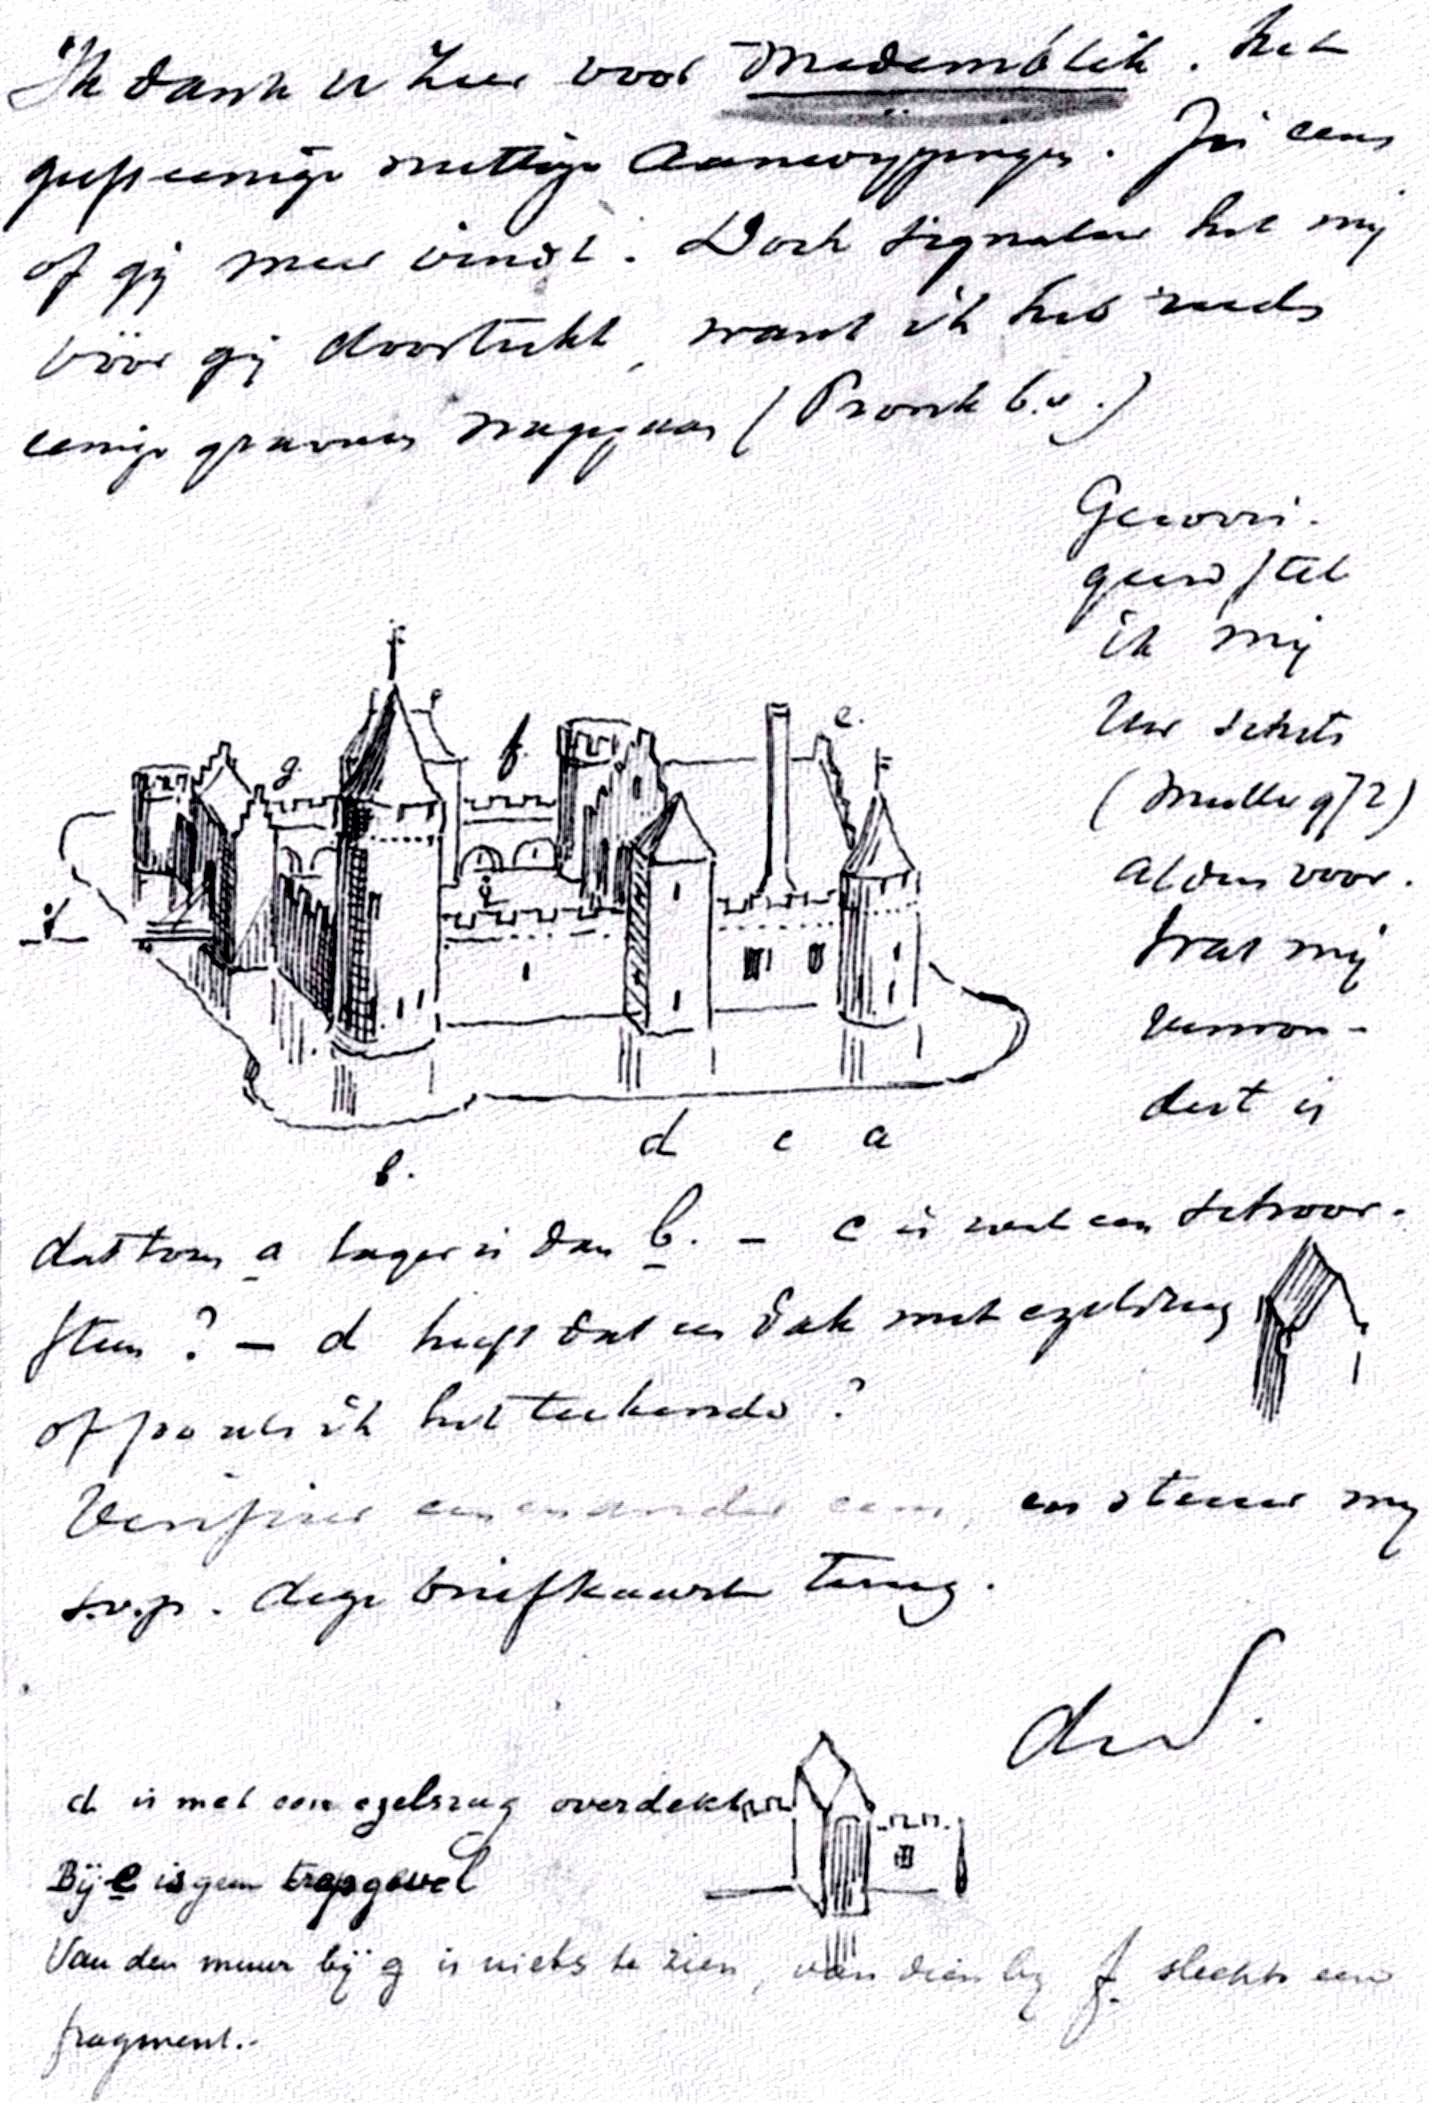 Ik dank U zeer voor Medemblik. Het
geeft eenige nuttige aanwijzingen. Zie eens
of gij meer vindt. Doch signaleer het mij
vóór gij doorteekt, want ik heb reeds
eenige gravures nagegaan (Pronk b.v.)
Gerecon-
strueerd stel
ik mij
Uw schets
(Muller 972)
aldus voor.
Wat mij
verwon-
dert is
g.
f.
e.
i
d c a
b.
dat toren a lager is dan b. - c is wel een schoor-
steen? - d heeft dat een dak met ezelsrug
of zooals ik het teekende?
Verifieer een en ander eens, en stuur mij
s.v.p. deze briefkaart terug.
d is met een ezelsrug overdekt
Bij e is geen trapgevel
Van den muur bij g is niets te zien, van dien bij f. slechts een
fragment.-